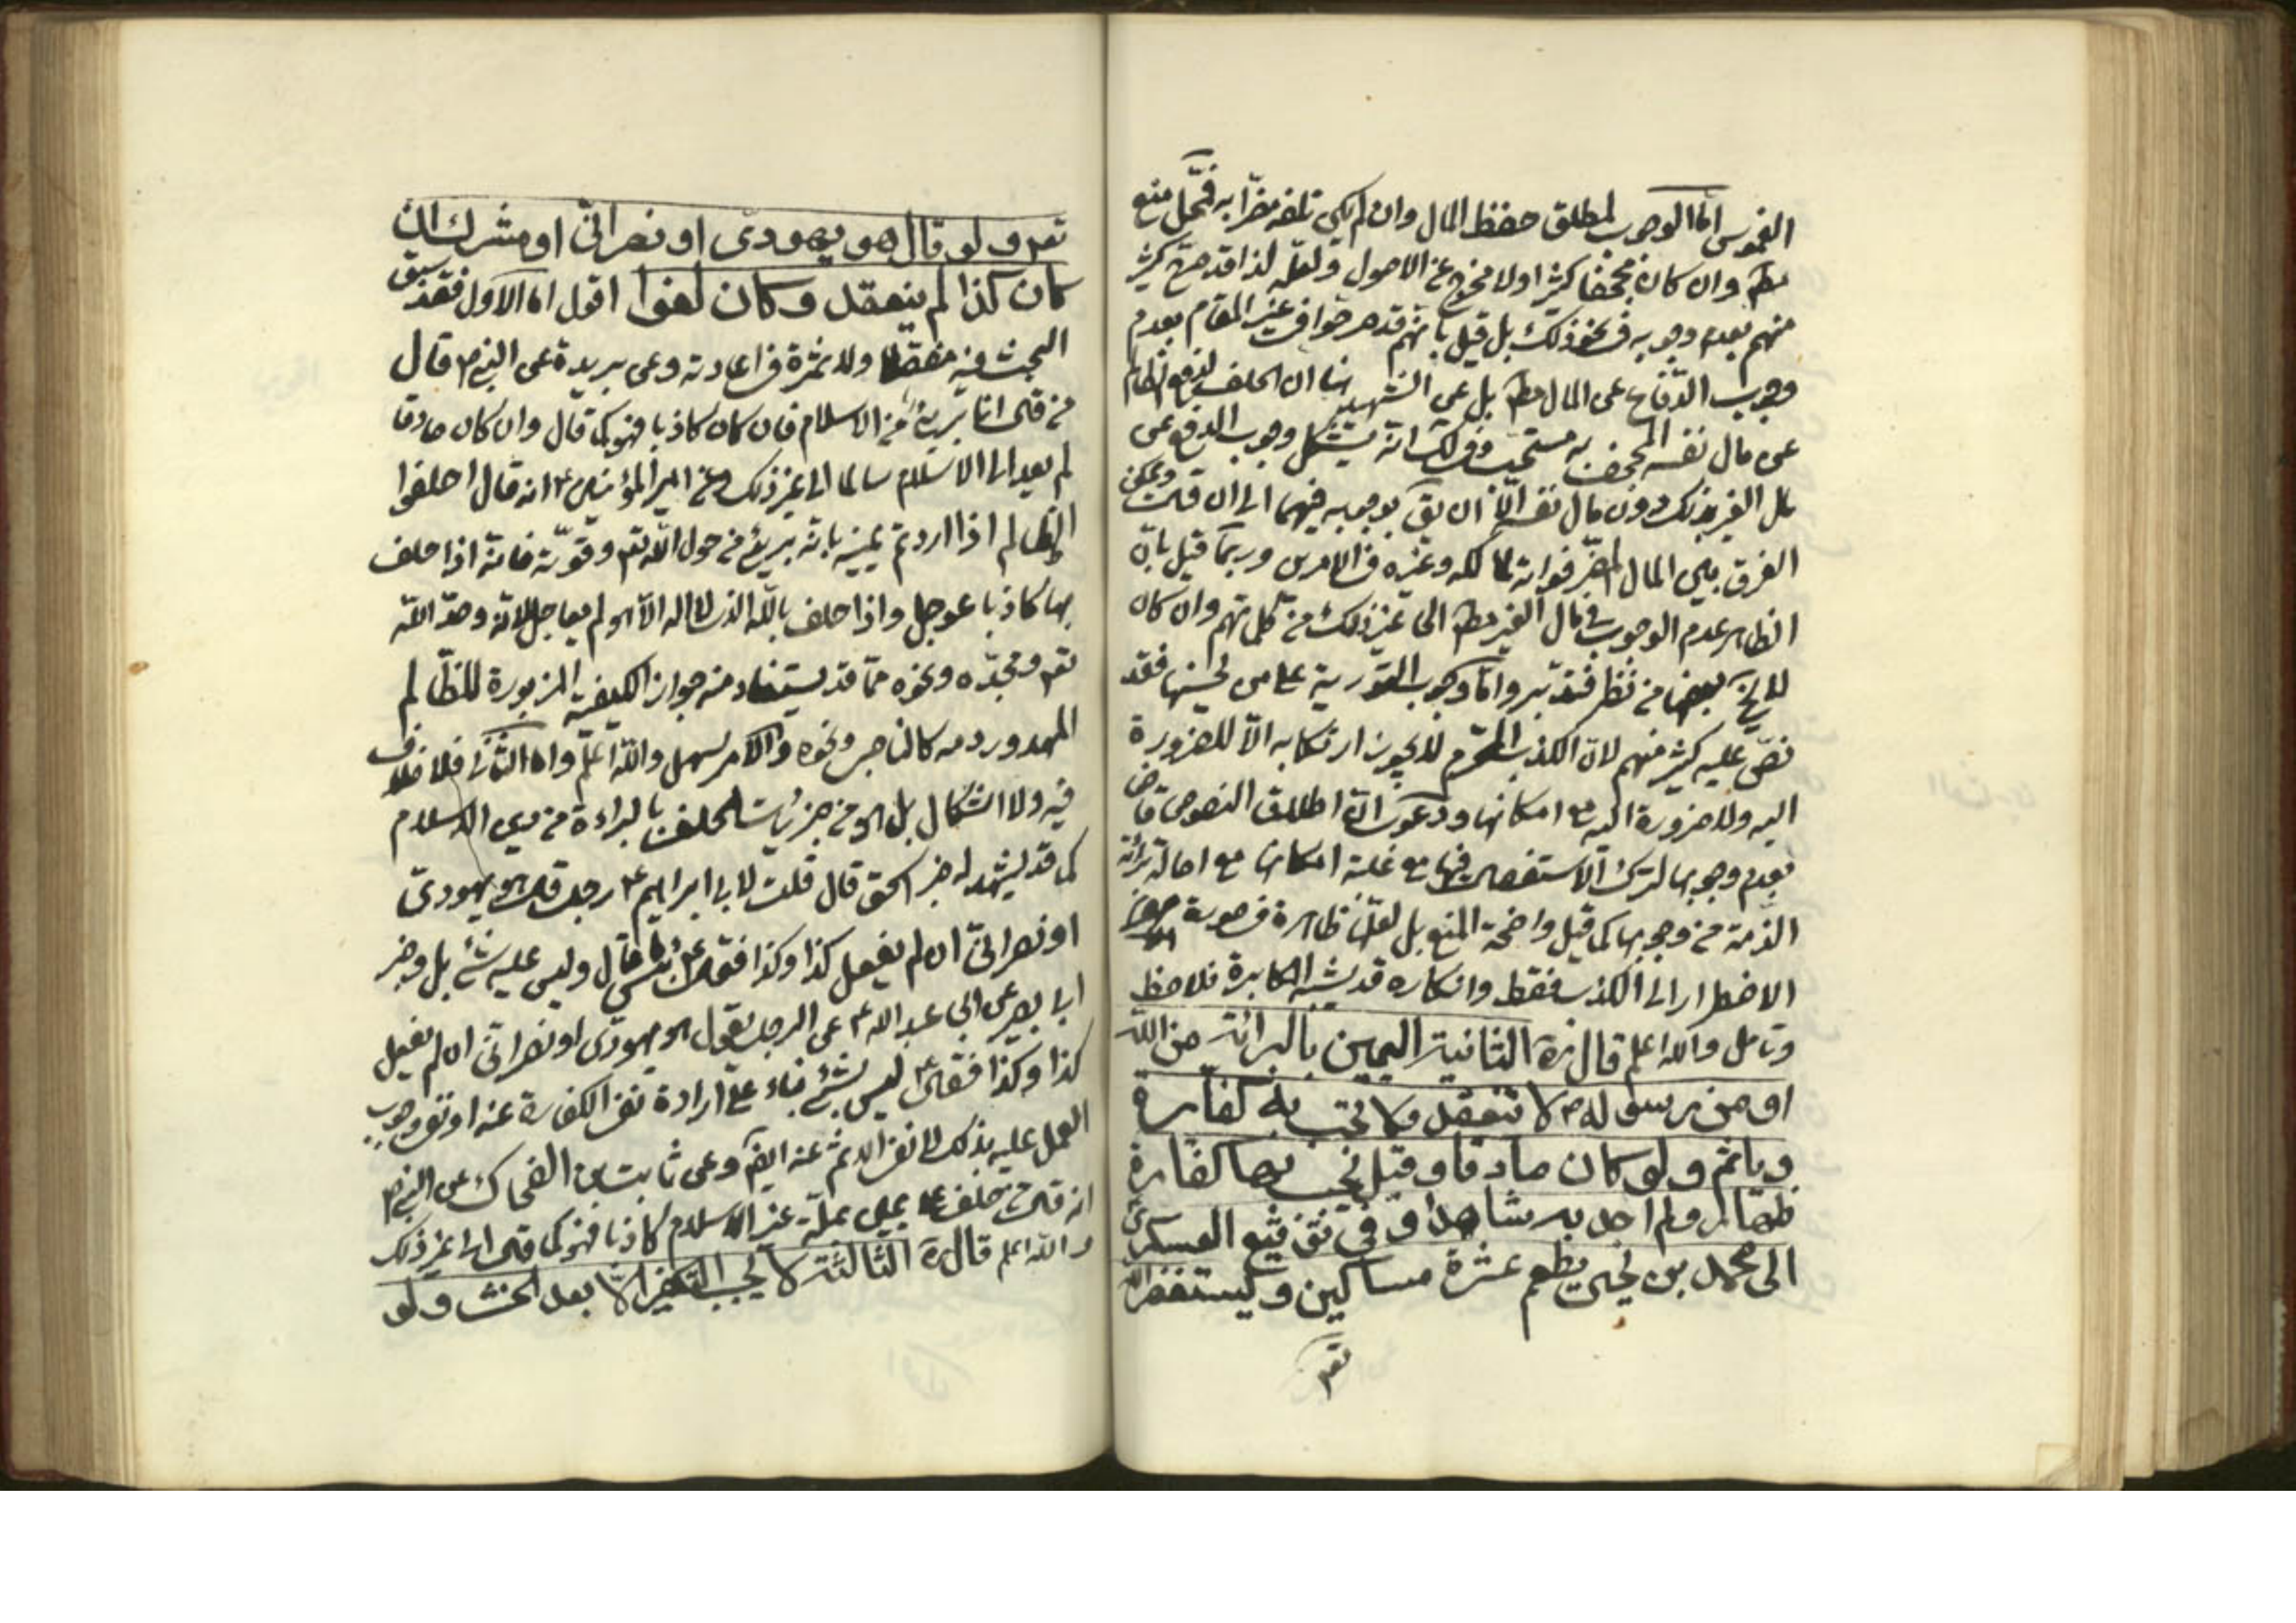 الغموس اما الوجوب لمطلق حفظ المال وان لم يكن تلفه مضرا به فمحل منع
مطم وان كان مجحفا كثيرا اولا مخرج عن الاصول ولعله لذا قد صرح كثير
منهم بعدم وجوبه في نحو ذلك بل قيل بانهم قد صرحوا في غير المقام بعدم
وجوب الدفاع عن المال مطم بل عن الشهيد ان الحلف لدفع الظالم
عن مال نفسه المجحف به مستحب وفي لك انه يشكل وجوب الدفع عن
مال الغير بذلك دون مال نفسه الا ان يق بوجوبه فيهما الى ان قال ويمكن
الفرق بين المال المضر فواته لمالكه وغيره في الامرين وربما قيل بان
الظاهر عدم الوجوب في مال الغير مطم الى غير ذلك من كلماتهم وان كان
لا يخ بعضها من نظر فتدبر واما وجوب التورية على من يحسنها فقد
نص عليه كثير منهم لان الكذب المحرم لا يجوز ارتكابه الا للضرورة
اليه ولا ضرورة اليه مع امكانها ودعوى ان اطلاق النصوص قاض
بعدم وجوبها لترك الاستفصال فيها مع غلبة امكانها مع اصالة برائة
الذمة من وجوبها كما قيل واضحة المنع بل لعلها ظاهرة في صورة
الاضطرار الى الكذب فقط وانكاره قد يشبه المكابرة فلاحظ
وتامل والله اعلم قال ره الثانية اليمين بالبرائة من الله
او من رسوله ص لا تنعقد ولا تجب به كفارة
وياثم ولو كان صادقا وقيل تجب بها كفارة
ظهار ولم اجد به شاهدا وفي توقيع العسكرى
الى محمد بن يحيى يطعم عشرة مساكين ويستغفر الله
تعم
تعم ولو قال هو يهودى او نصرانى او مشرك ان
كان كذا لم ينعقد وكان لغوا اقول اما الاول فقد سبق
البحث فيه مفصلا ولا ثمرة في اعادته وعن بريدة عن النبي ص قال
من قال انا برئ من الاسلام فان كان كاذبا فهو كما قال وان كان صادقا
لم يعد الى الاسلام سالما الى غير ذلك وعن امير المؤمنين ع انه قال احلفوا
الظالم اذا اردتم يمينه بانه برئ من حول الله تعم وقوته فانه اذا حلف
بها كاذبا عوجل واذا حلف بالله الذي لا اله الا هو لم يعاجل لانه وحد الله
تعم ومجده ونحوه مما قد يستفاد منه جواز الكيفية المزبورة للظالم
المهدور دمه كالناصب ونحوه والامر سهل والله اعلم واما الثاني فلا خلاف
فيه ولا اشكال بل هو من جزئيات الحلف بالبراءة من دين الاسلام
كما قد يشهد له خبر اسحق قال قلت لابي ابراهيم ع رجل قال هو يهودى
او نصرانى ان لم يفعل كذا وكذا فقال ع بئس ما قال وليس عليه شئ بل وخبر
ابي بصير عن ابي عبد الله ع عن الرجل يقول هو يهودى او نصرانى ان لم يفعل
كذا وكذا فقال ع ليس بشئ بناء على ارادة نفي الكفارة عنه او نفي وجوب
العمل عليه بذلك لا نفي الاثم عنه ايضا وعن ثابت بن الضحاك عن النبي ص
انه قال من حلف على يمين بملة غير الاسلام كاذبا فهو كما قال الى غير ذلك
والله اعلم قال ره الثالثة لا يجب التكفير الا بعد الحنث ولو